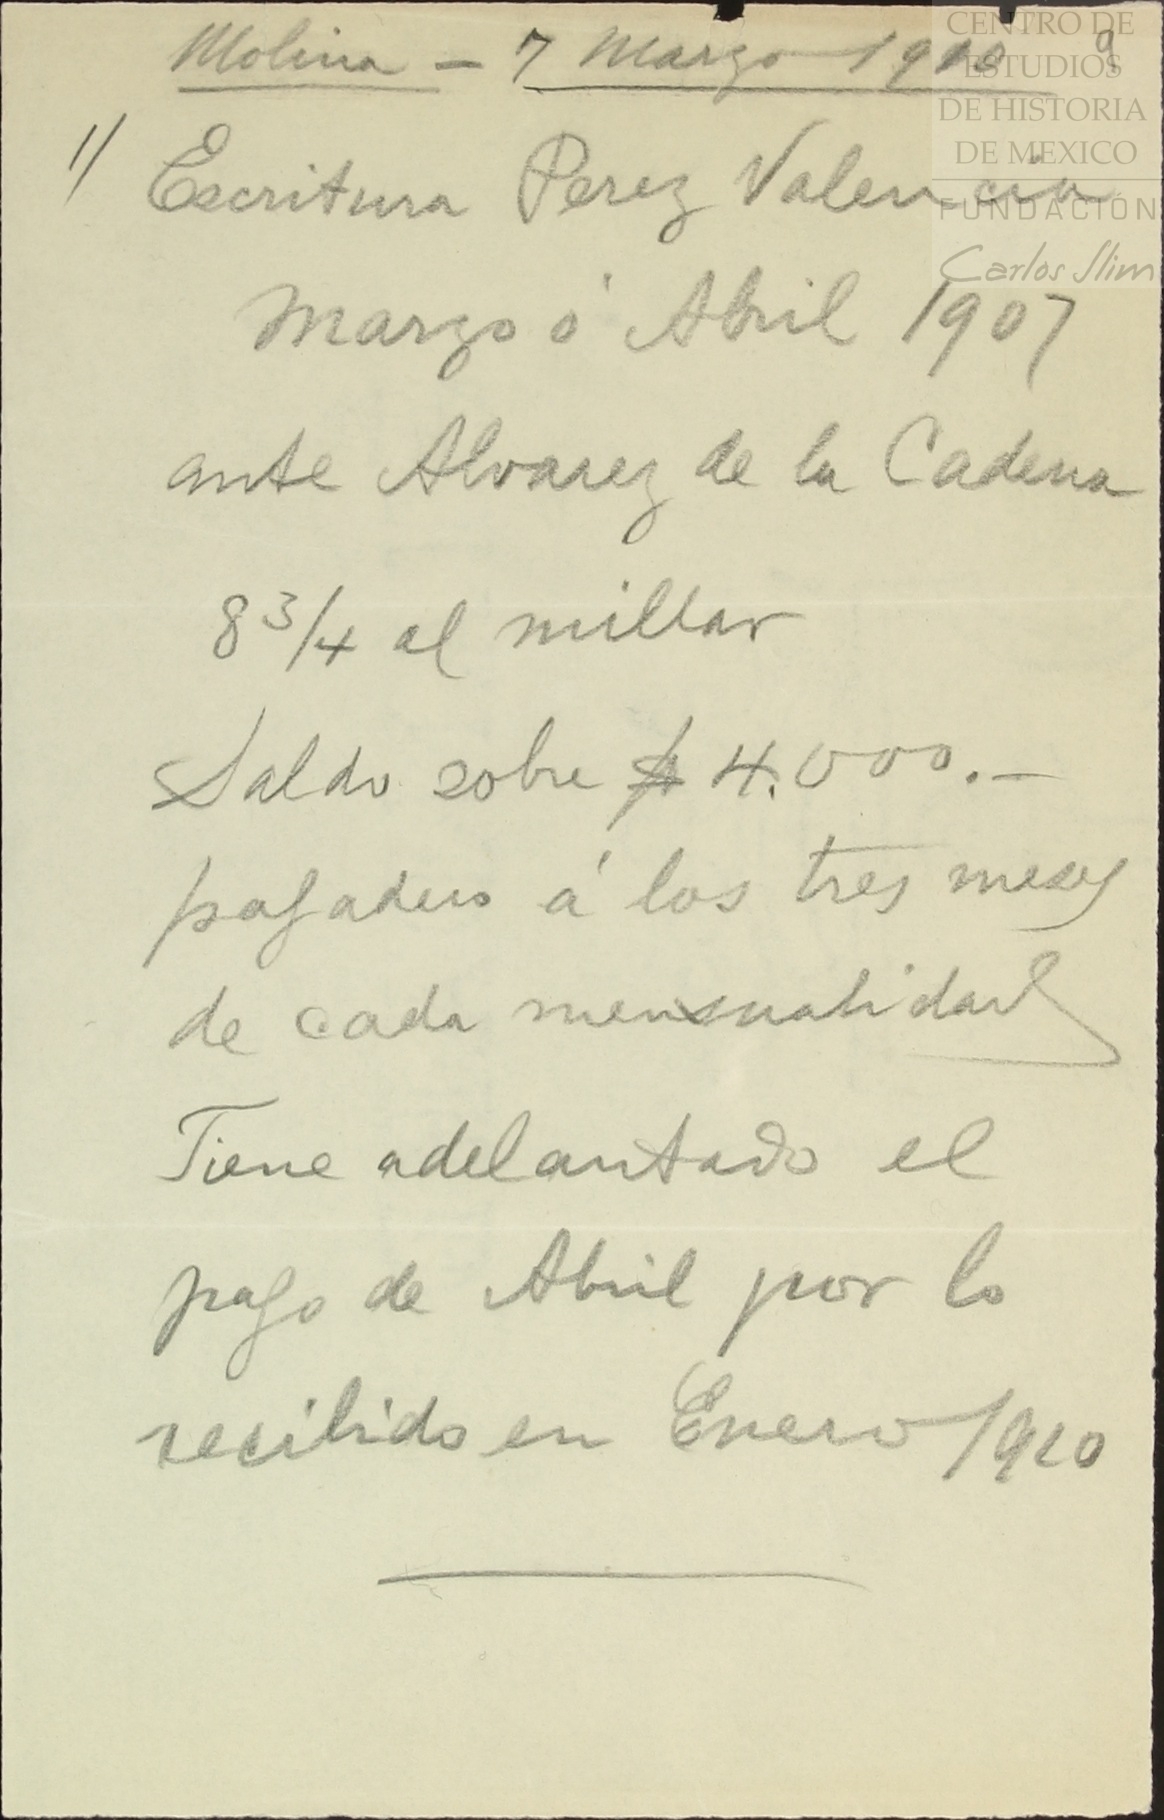 Molina - 7 Marzo 1910
9
1/ Escritura Perez Valencia
Marzo ó Abril 1907
ante Alvarez de la Cadena
8 3/4 al millar
Saldo sobre $ 4.000.-
pagadero á los tres meses
de cada mensualidad
Tiene adelantado el
pago de Abril por lo
recibido en Enero 1910
CENTRO DE
ESTUDIOS
DE HISTORIA
DE MEXICO
FUNDACIÓN
Carlos Slim